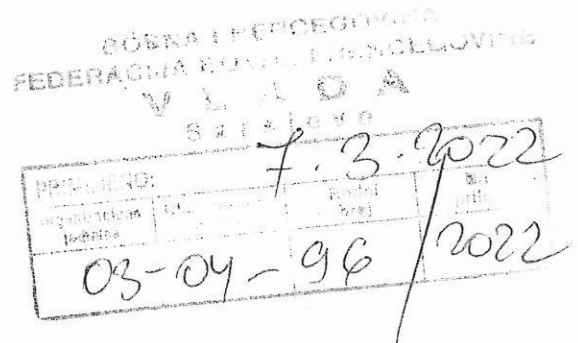 BOSNA I HERCEGOVINA
FEDERACIJA BOSNE I HERCEGOVINE
VLADA
Sarajevo
PRIMLJENO: 7.3.2022
Organizaciona jedinica Redni broj
03-04-96/2022